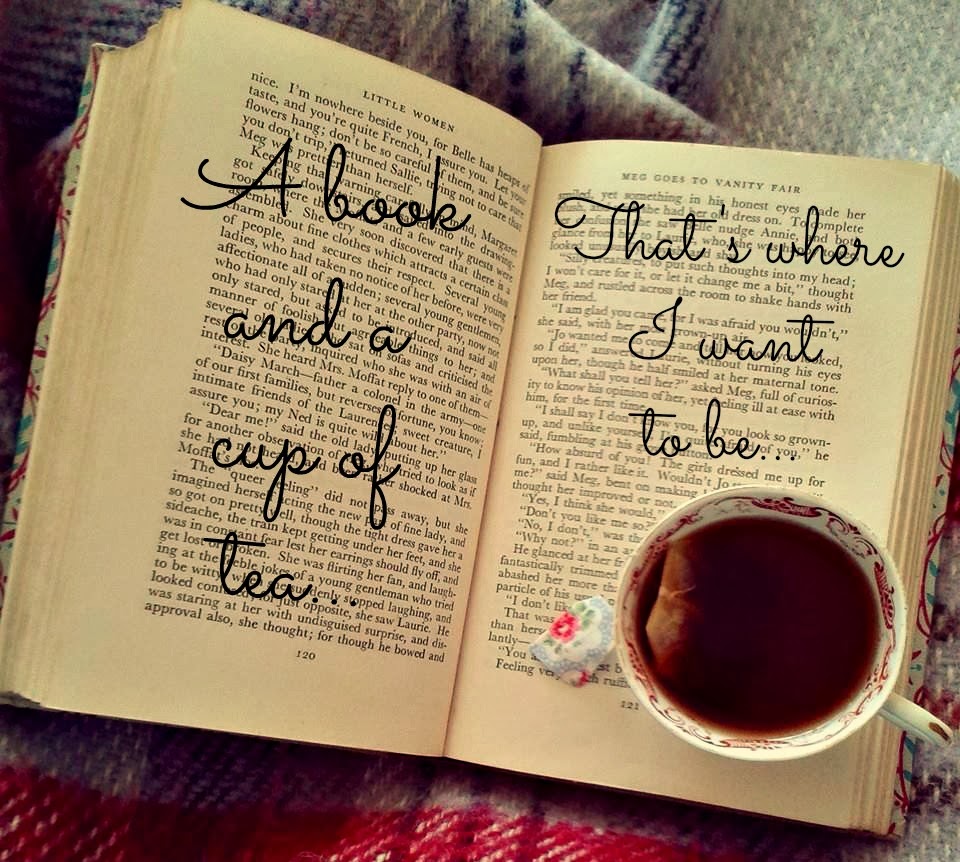 A book
and a
cup of
tea...
That's where
I want
to be...
LITTLE WOMEN
nice. I'm nowhere beside you, for Belle has heaps of
taste, and you're quite French, I assure you. Let your
flowers hang; don't be so careful of them, and be sure
you don't trip," returned Sallie, trying not to care that
Meg was prettier than herself.
Keeping that warning in mind, Margaret
got safely down and into the drawing-
rooms where the a few early guests were
assembled. She very soon discovered that there is a
charm about fine clothes which attracts a certain class
of people, and secures their respect. Several young
ladies, who had taken no notice of her before, were very
affectionate all of a sudden; several young gentlemen,
who had only stared at her at the other party, now not
only stared, but asked to be introduced, and said all
manner of foolish but agreeable things to her; and
several old who sat on sofas and criticised the
rest inquired who she was with an air of
interest. She heard Mrs. Moffat reply to one of them—
"Daisy March—father a colonel in the army—one
of our first families, but reverses of fortune, you know;
intimate friends of the Laurences; sweet creature, I
assure you; my Ned is quite wild about her."
"Dear me!" said the old lady, putting up her glass
for another observation of who tried to look as if
she had and been rather shocked at Mrs.
Moffat's
The "queer feeling" did not pass away, but she
imagined herself acting the new part of fine lady, and
so got on pretty well, though the tight dress gave her a
sideache, the train kept getting under her feet, and she
was in constant fear lest her earrings should fly off, and
get lost or broken. She was flirting her fan, and laugh-
ing at the feeble jokes of a young gentleman who tried
to be witty, when she suddenly stopped laughing, and
looked confused; for just opposite, she saw Laurie. He
was staring at her with undisguised surprise, and dis-
approval also, she thought; for though he bowed and
120
MEG GOES TO VANITY FAIR
smiled, yet something in his honest eyes made her
she had her old dress on. To complete
her confusion, she saw Belle nudge Annie, and both
glance from her to Laurie, who, she was
looked
"Silly creatures, to put such thoughts into my head;
I won't care for it, or let it change me a bit," thought
Meg, and rustled across the room to shake hands with
her friend.
"I am glad you came, for I was afraid you wouldn't,"
she said, with her grown-up air.
"Jo wanted me to come and tell her how you looked,
so I did," answered Laurie, without turning his eyes
upon her, though he half smiled at her maternal tone.
"What shall you tell her?" asked Meg, full of curios-
ity to know his opinion of her, yet feeling ill at ease with
him, for the first time.
"I shall say I don't know you, for you look so grown-
up, and unlike yourself, I'm afraid of you," he
said, fumbling at his glove-button.
"How absurd of you! The girls dressed me up for
fun, and I rather like it. Wouldn't Jo
me?" said Meg, bent on making
thought her improved or not.
"Yes, I think she would,"
"Don't you like me so?"
"No, I don't," was the
"Why not?" in an a
He glanced at her fr
fantastically trimmed
abashed her more th
particle of his usu
"I don't lik
That was
than hers
lantly—
"You a
Feeling very much ruffl
121